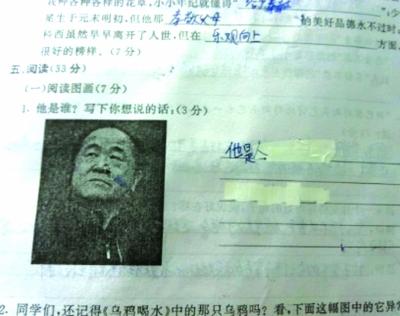 我种各种各样的花草,小小年纪就懂得"
生于元末明初,但他那 孝敬父母 的美好品德永不过时。
科西虽然早早离开了人世,但在 乐观向上 方面,
很好的榜样。(7分)
五、阅读(33分)
(一)阅读图画(7分)
1. 他是谁?写下你想说的话:(3分)
他是人
2. 同学们,还记得《乌鸦喝水》中的那只乌鸦吗?看,下面这幅图中的它异常